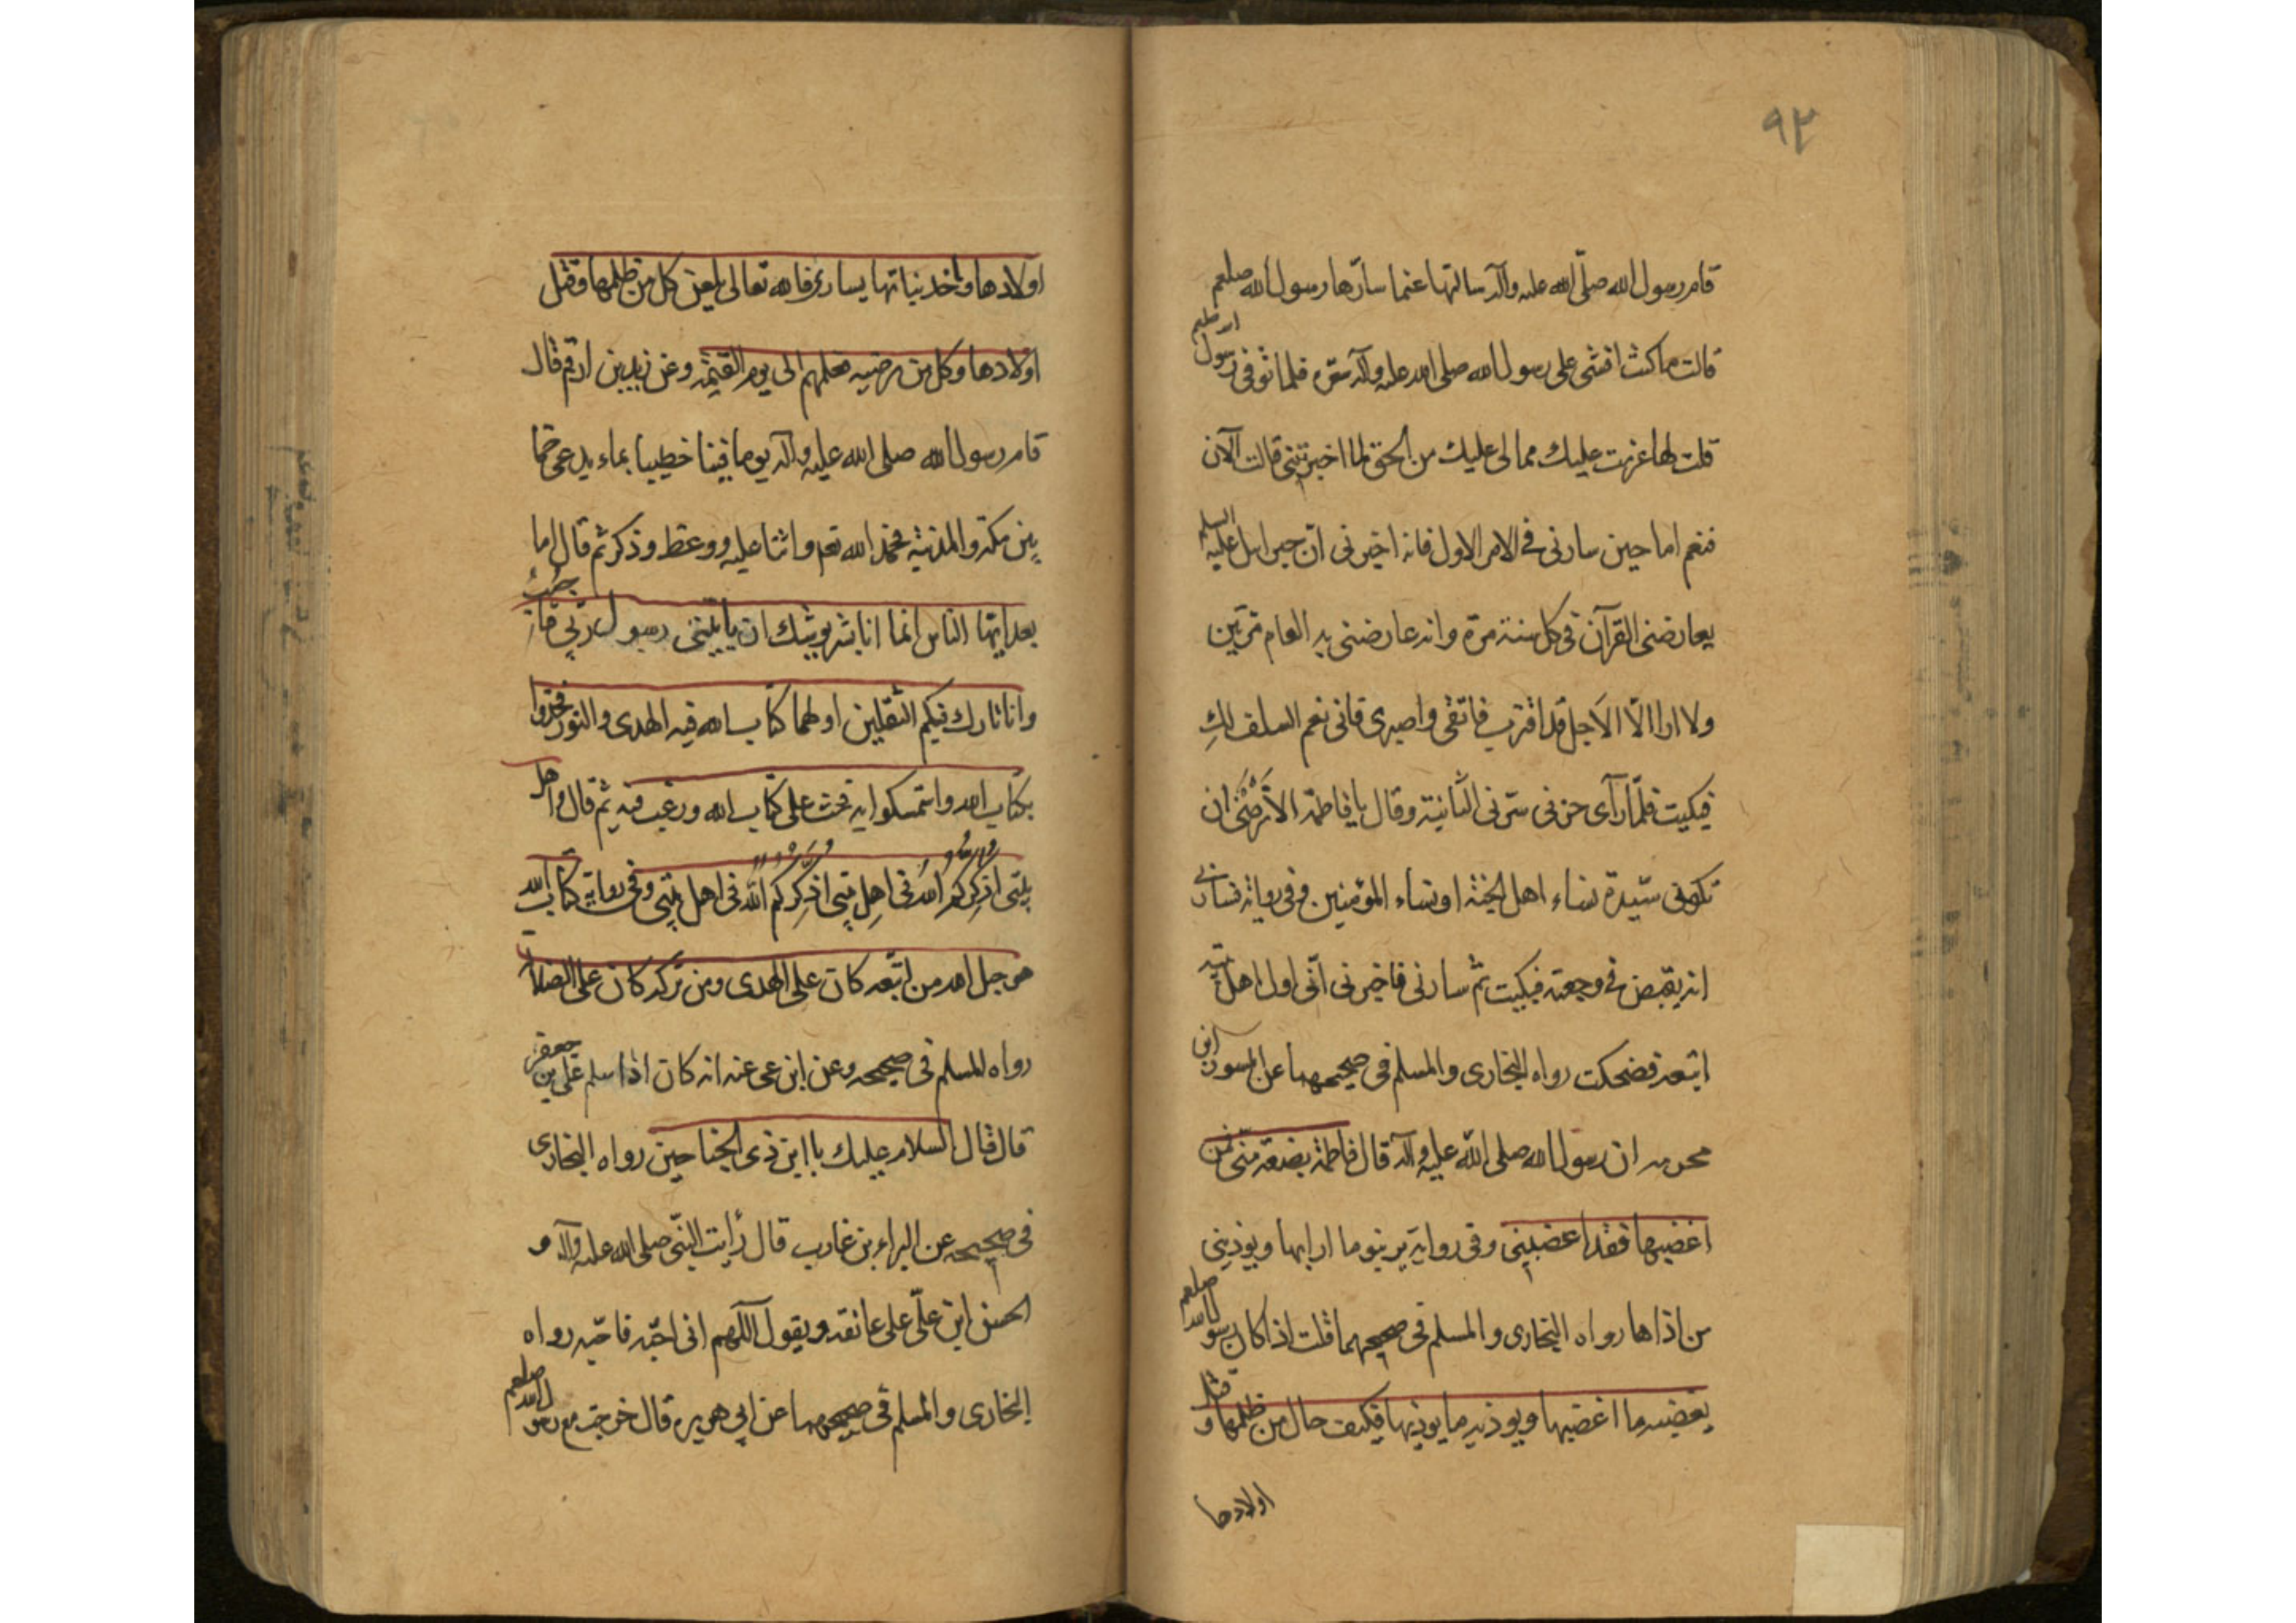 ٩٢
قام رسول الله صلّى الله عليه وآله سالتها عنما سارّها رسول الله صلعم
قالت ما كنت افشى على رسول الله صلى الله عليه وآله سرّه فلما توفى رسول الله صلعم
قلت لها عزمت عليك مما لى عليك من الحق لما اخبرتنى قالت الآن
فنعم اما حين سارنى فى الامر الاول فانه اخبرنى انّ جبرائيل عليه السلم
يعارضنى القرآن فى كل سنة مرّة وانه عارضنى به العام مرّتين
ولا ارا الّا الاَجل قد اقترب فاتقى واصبرى فانى نعم السلف لكِ
فبكيت فلمّا رآى جزنى سرّنى الثانية وقال يا فاطمة الا تَرضَىْ ان
تكونى سيّدة نساء اهل الجنة او نساء المؤمنين وفى رواية فسارنى
انه يقبض فى وجعته فبكيت ثم سارنى فاخبرنى انّى اول اهل بيته
اتبعه فضحكت رواه البخارى والمسلم فى صحيحهما عن المسور ابن
محرمه ان رسول الله صلى اللّه عليه وآله قال فاطمة بضعة منّى فمن
اغضبها فقد اغضبنى وفى رواية يريبنو ما ارابها ويوذينى
من اذاها رواه البخارى والمسلم فى صحيحهما قلت اذا كان رسول الله صلعم
يغضبه ما اغضبها ويوذيه ما يوذيها فكيف حال من ظلمها وقتل
اولادها
اولادها واخذ بناتها يسارى فالله تعالى يلعن كل من ظلمها وقتل
اولادها وكل من رضيه فعلهم الى يوم القيمة وعن زيد بن ارقم قال
قام رسول الله صلى الله عليه وآله يوما فينا خطيبا بماء يدعى خما
بين مكة والمدنية فحمد الله تعه واثنا عليه ووعظ وذكر ثم قال اما
بعد ايّها الناس انما انا بشر يوشك ان ياتينى رسول ربّى فاجيب
وانا تارك فيكم الثقلين اولهما كتاب الله فيه الهدى والنور فخذوا
بكتاب الله واستمسكوا به فحث على كتاب الله ورغب فيه ثم قال واهل
بيتى اذكّركُم اللهُ فى اهِل بيتى اذكِّرِكُم اللّه فى اهل بيتى وفى رواية كتاب الله
هو حبل الله من اتبعه كان على الهدى ومن تركه كان على الضلالة
رواه المسلم فى صحيحه وعن ابن عى عنه انه كان اذا سلم على بن جعفر
قال قال السلام عليك يا ابن ذى الجناحين رواه البخارى
فى صحيحه عن البراء بن غارب قال رأيت النبّى صلى الله عليه وآله و
الحسن ابن علّى على عاتقه ويقول اللّهم انى احبّه فاحبّه رواه
البخارى والمسلم فى صحيحهما عن ابى هريره قال خرجت مع رسول الله صلعم